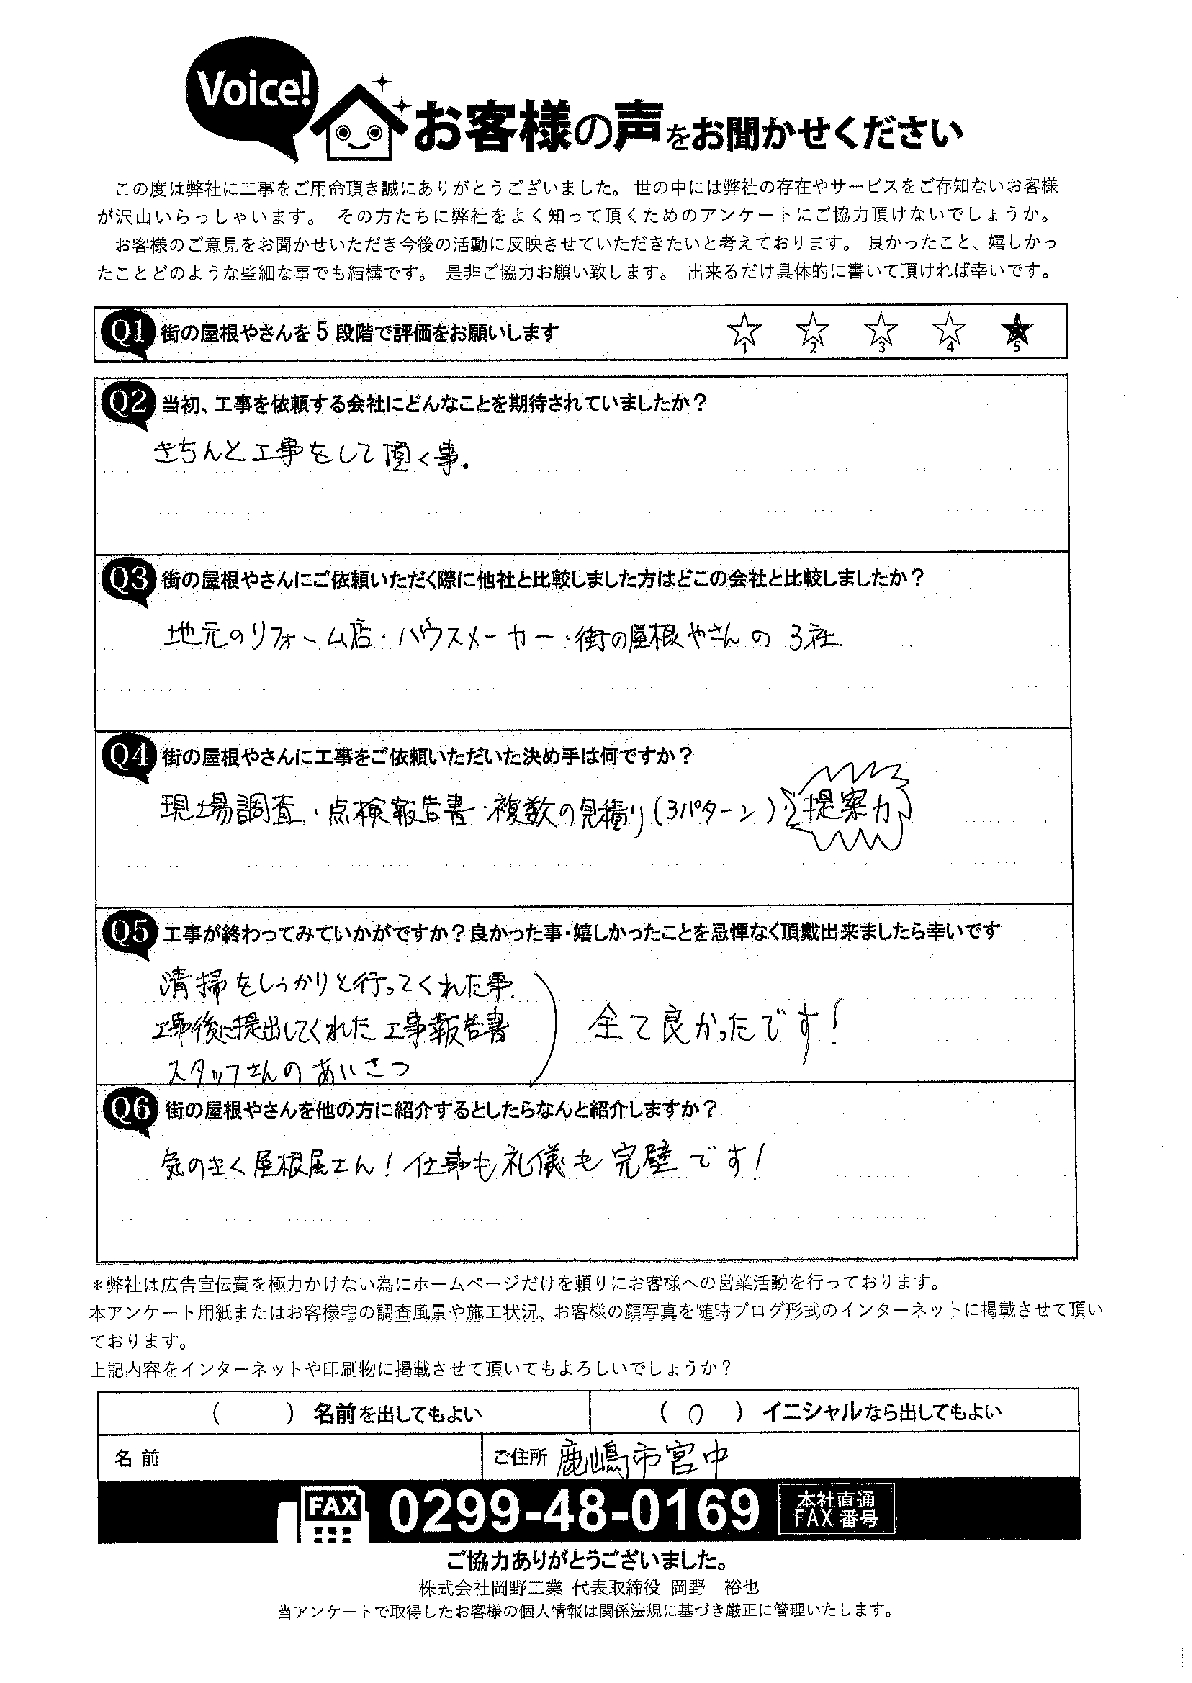 Voice!
お客様の声をお聞かせください
この度は弊社に工事をご用命頂き誠にありがとうございました。世の中には弊社の存在やサービスをご存知ないお客様
が沢山いらっしゃいます。 その方たちに弊社をよく知って頂くためのアンケートにご協力頂けないでしょうか。
お客様のご意見をお聞かせいただき今後の活動に反映させていただきたいと考えております。 良かったこと、嬉しかっ
たことどのような些細な事でも結構です。 是非ご協力お願い致します。 出来るだけ具体的に書いて頂ければ幸いです。
Q1 街の屋根やさんを5段階で評価をお願いします ☆1 ☆2 ☆3 ☆4 ★5
Q2 当初、工事を依頼する会社にどんなことを期待されていましたか？
きちんと工事をして頂く事.
Q3 街の屋根やさんにご依頼いただく際に他社と比較しました方はどこの会社と比較しましたか？
地元のリフォーム店・ハウスメーカー・街の屋根やさんの3社
Q4 街の屋根やさんに工事をご依頼いただいた決め手は何ですか？
現場調査・点検報告書・複数の見積り(3パターン) 提案力
Q5 工事が終わってみていかがですか？良かった事・嬉しかったことを忌憚なく頂戴出来ましたら幸いです
清掃をしっかりと行ってくれた事.
工事後に提出してくれた工事報告書
スタッフさんのあいさつ
全て良かったです!
Q6 街の屋根やさんを他の方に紹介するとしたらなんと紹介しますか？
気のきく屋根屋さん!仕事も礼儀も完璧です!
*弊社は広告宣伝費を極力かけない為にホームページだけを頼りにお客様への営業活動を行っております。
本アンケート用紙またはお客様宅の調査風景や施工状況、お客様の顔写真を随時ブログ形式のインターネットに掲載させて頂い
ております。
上記内容をインターネットや印刷物に掲載させて頂いてもよろしいでしょうか？
( ) 名前を出してもよい ( 〇 ) イニシャルなら出してもよい
名前 ご住所 鹿嶋市宮中
FAX 0299-48-0169 本社直通
FAX番号
ご協力ありがとうございました。
株式会社岡野工業 代表取締役 岡野 裕也
当アンケートで取得したお客様の個人情報は関係法規に基づき厳正に管理いたします。